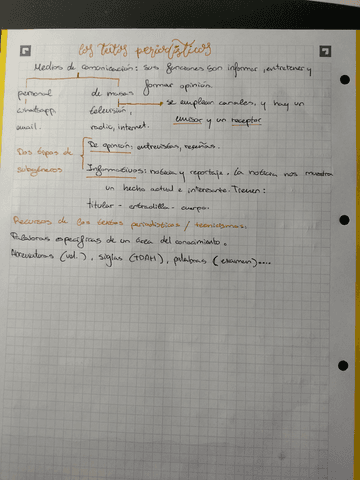 los textos periodísticos
Medios de comunicación: sus funciones son informar, entretener y
formar opinión.
personal
de masas
→ se emplean canales, y hay un
whatsapp
televisión,
emisor y un receptor
email.
radio, internet.
Dos tipos de
subgéneros
De opinión: entrevistas, reseñas.
Informativos: noticia y reportaje. La noticia nos muestra
un hecho actual e interesante. Tienen:
titular - entradilla - cuerpo.
Recursos de los textos periodísticos / tecnicismos.
Palabras específicas de un área del conocimiento.
Abreviaturas (vol.), siglas (TDAH), palabras (examen)....